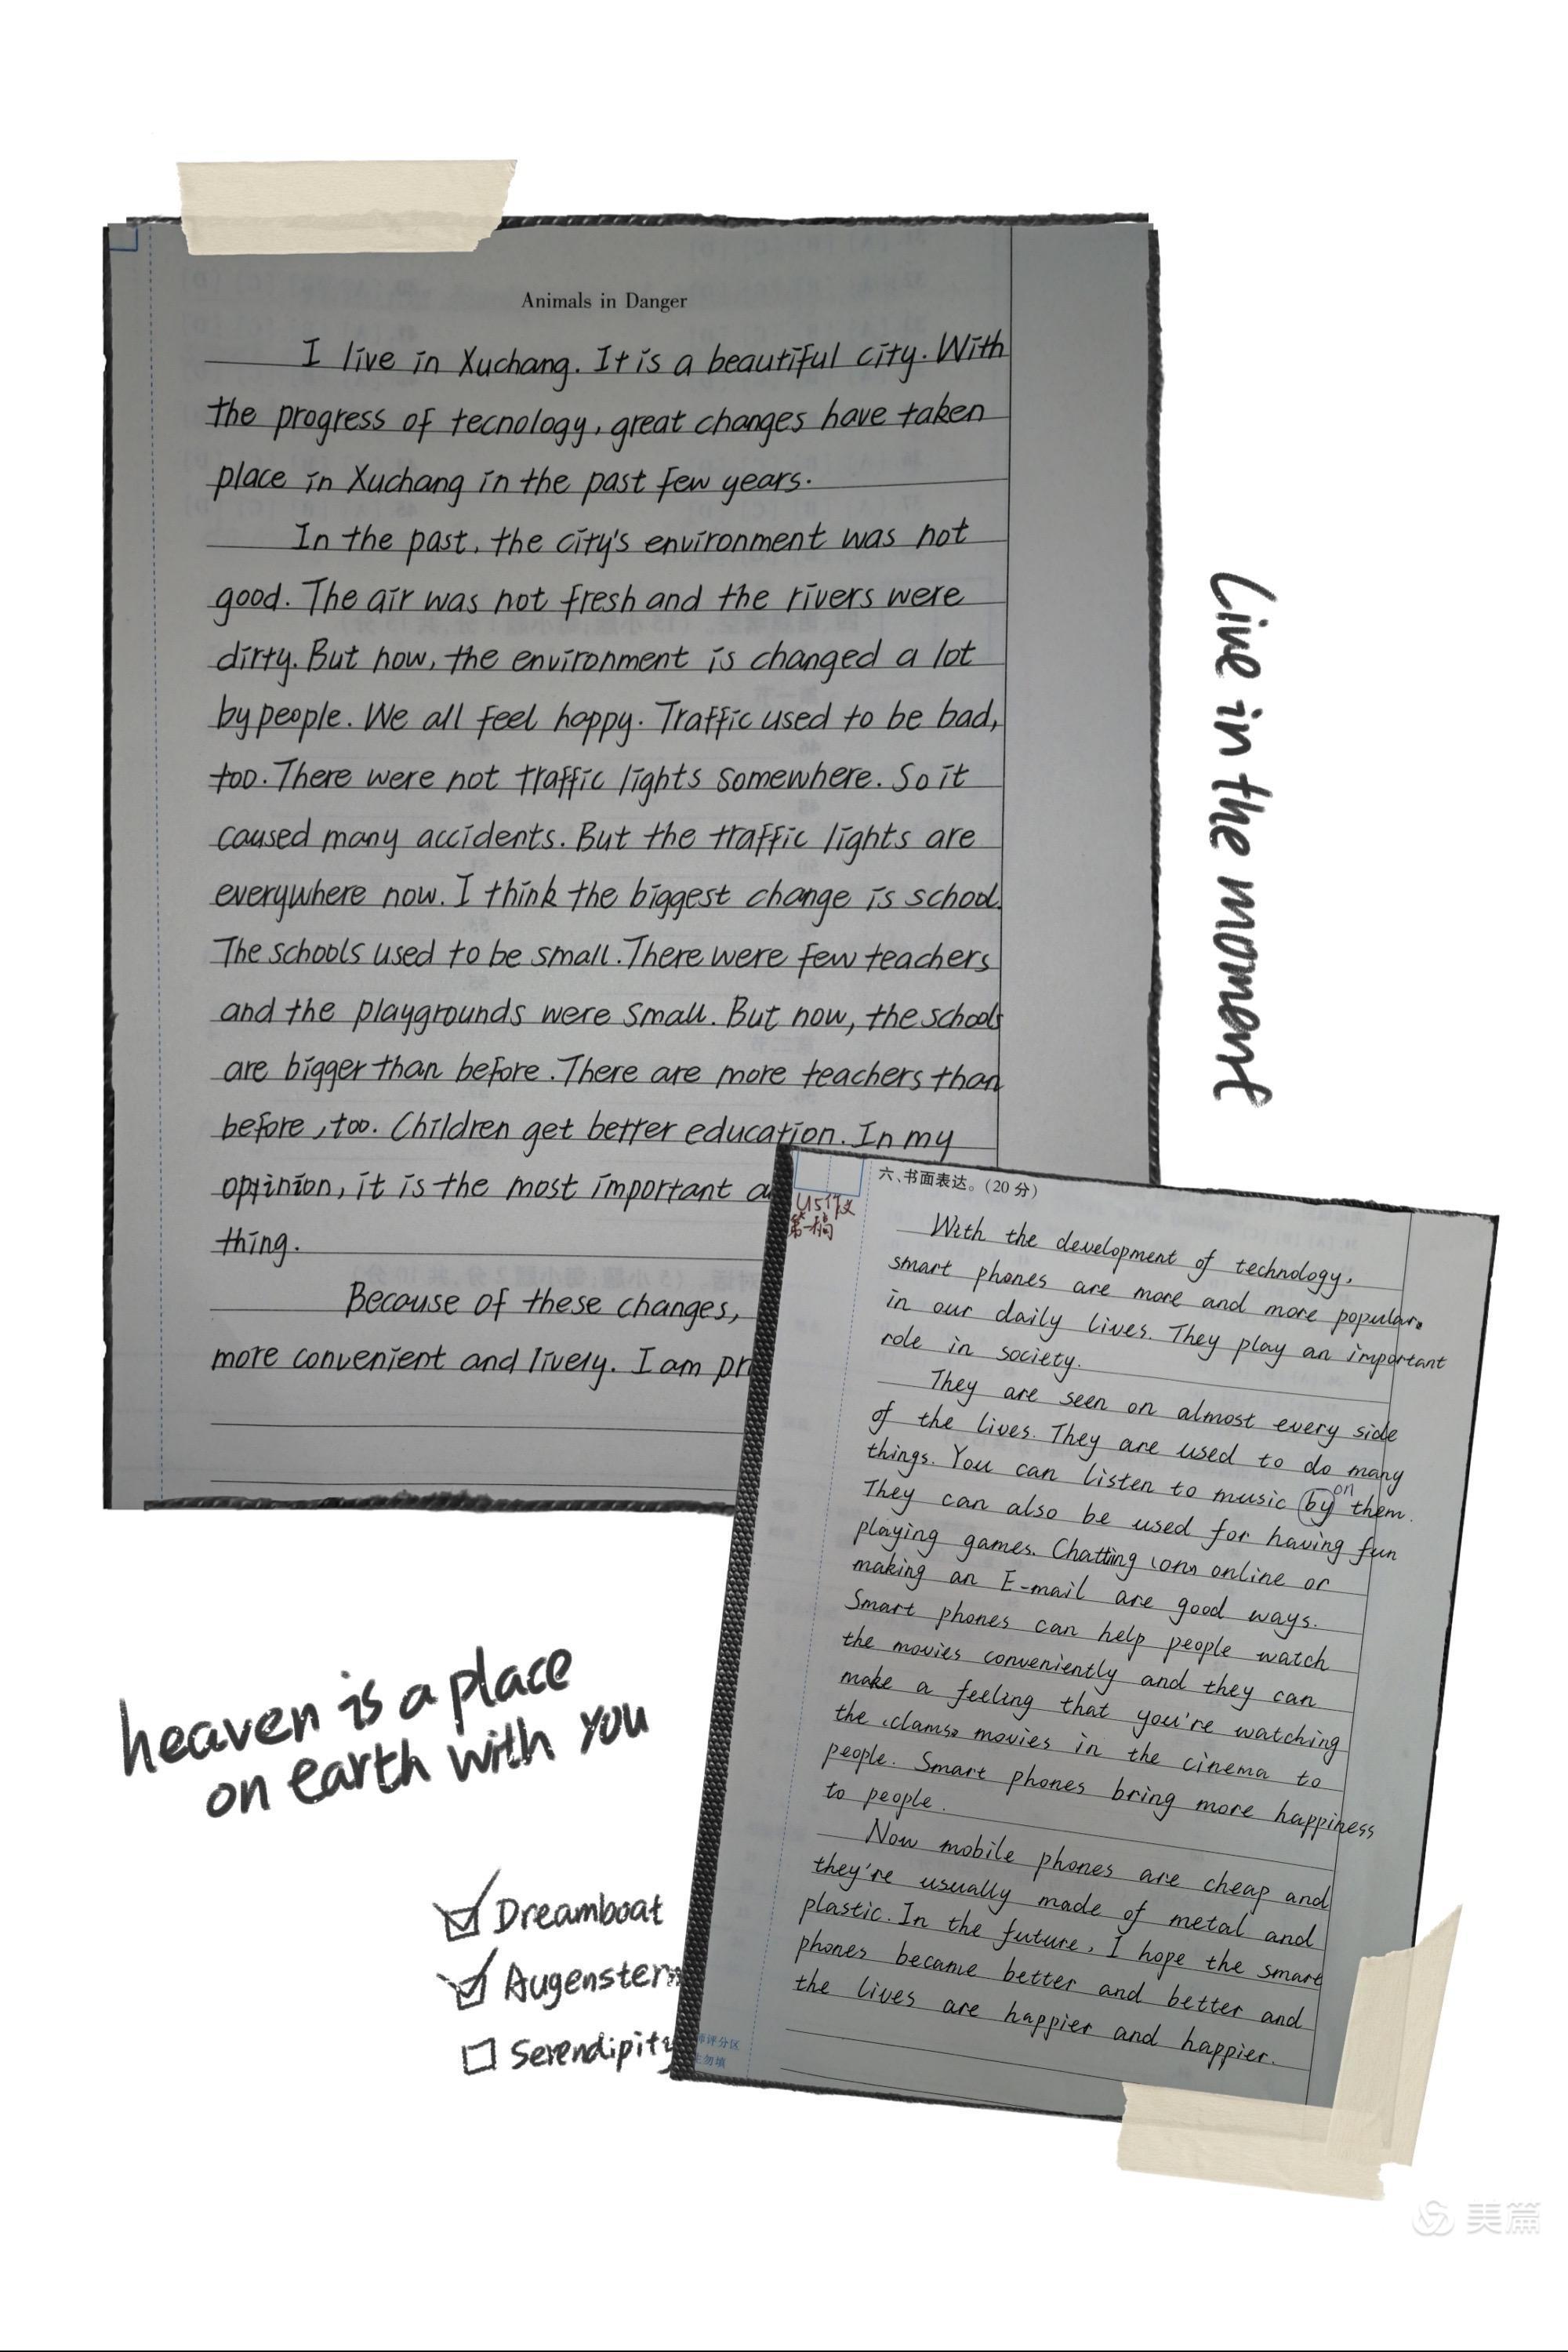 Animals in Danger
I live in Xuchang. It is a beautiful city. With
the progress of tecnology, great changes have taken
place in Xuchang in the past few years.
In the past, the city's environment was not
good. The air was not fresh and the rivers were
dirty. But now, the environment is changed a lot
by people. We all feel happy. Traffic used to be bad,
too. There were not traffic lights somewhere. So it
caused many accidents. But the traffic lights are
everywhere now. I think the biggest change is school.
The schools used to be small. There were few teachers
and the playgrounds were small. But now, the schools
are bigger than before. There are more teachers than
before, too. Children get better education. In my
opinion, it is the most important
thing.
Because of these changes,
more convenient and lively. I am
Live in the moment
六、书面表达。(20 分)
U5作文
第一稿
With the development of technology,
smart phones are more and more popular.
in our daily lives. They play an important
role in society.
They are seen on almost every side
of the lives. They are used to do many
things. You can listen to music by on them.
They can also be used for having fun
playing games. Chatting on online or
making an E-mail are good ways.
Smart phones can help people watch
the movies conveniently and they can
make a feeling that you're watching
the movies in the cinema to
people. Smart phones bring more happiness
to people.
Now mobile phones are cheap and
they're usually made of metal and
plastic. In the future, I hope the smart
phones became better and better and
the lives are happier and happier.
评分区
勿填
heaven is a place
on earth with you
Dreamboat
Augenstern
Serendipity
美篇